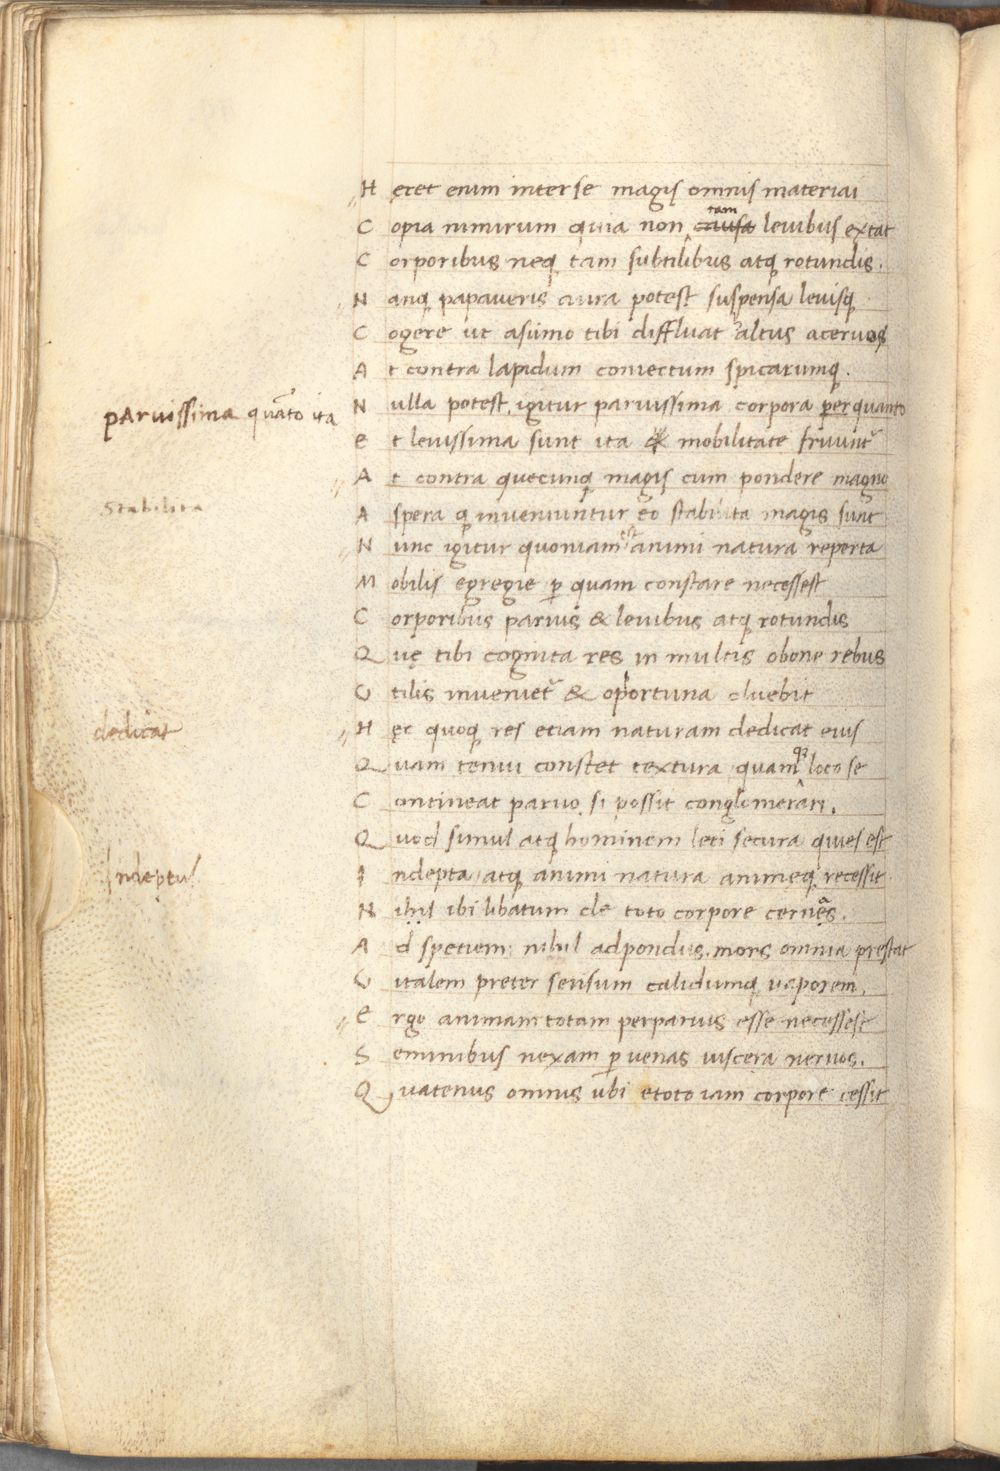 Hęret enim inter se magis omnis materiai
tam
Copia nimirum quia non causa leuibus extat
Corporibus neq; tam subtilibus atq; rotundis.
Nanq; papaueris aura potest suspensa leuisq;
Cogere ut asumo tibi diffluat altus aceruos
At contra lapidum coniectum spicarumq;.
paruissima quāto ita
Nulla potest, igitur paruissima corpora perquanto
Et leuissima sunt ita & mobilitate fruunt᷑
At contra quecunq; magis cum pondere magno
Stabilita
Aspera q; inueniuntur eo stabilita magis sunt
Nunc igitur quoniam est animi natura reperta
Mobilis egregie ꝑ quam constare necessest
Corporibus paruis & leuibus atq; rotundis
Quę tibi cognita res in multis obone rebus
Utilis inueniet᷑ & oportuna cluebit
dedicat
Hęc quoq; res etiam naturam dedicat eius
Quam tenui constet textura quam q; loco se
Contineat paruo, si possit conglomerari.
Quod simul atq; hominem leti secura quies est
Indeptus
Indepta atq; animi natura animeq; recessit.
Nihil ibi libatum de toto corpore cernas.
Ad speciem nihil adpondus. mors omnia prestat
Uitalem preter sensum calidumq; uaporem.
Ergo animam totam perparuis esse necessest
Seminibus nexam ꝑ uenas uiscera neruos.
Quatenus omnis ubi etoto iam corpore cessit